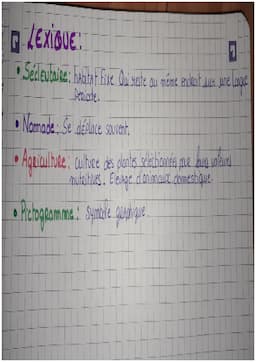 LEXIQUE:
• Sédentaire: habitat fixe Qui reste au même endroit sur une longue
période.
• Nomade: Se déplace souvent.
• Agriculture: culture des plantes sélectionnées pour leurs valeurs
nutritives. Elevage d'animaux domestique.
• Pictogramme: symbole graphique.